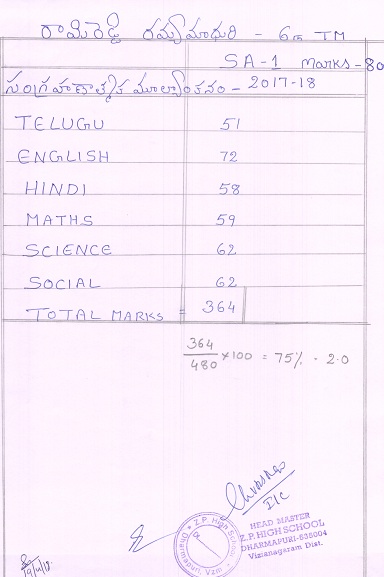 రామిరెడ్డి రమ్యమాధురి - 6th TM
SA-1 Marks-80
సంగ్రహణాత్మక మూల్యాంకనం - 2017-18
TELUGU 51
ENGLISH 72
HINDI 58
MATHS 59
SCIENCE 62
SOCIAL 62
TOTAL MARKS = 364
364/480 ×100 = 75% - 2.0
I/C
HEAD MASTER
Z.P. HIGH SCHOOL
DHARMAPURI-535004
Vizianagaram Dist.
Z.P. High School
Dharmapuri, Vzm